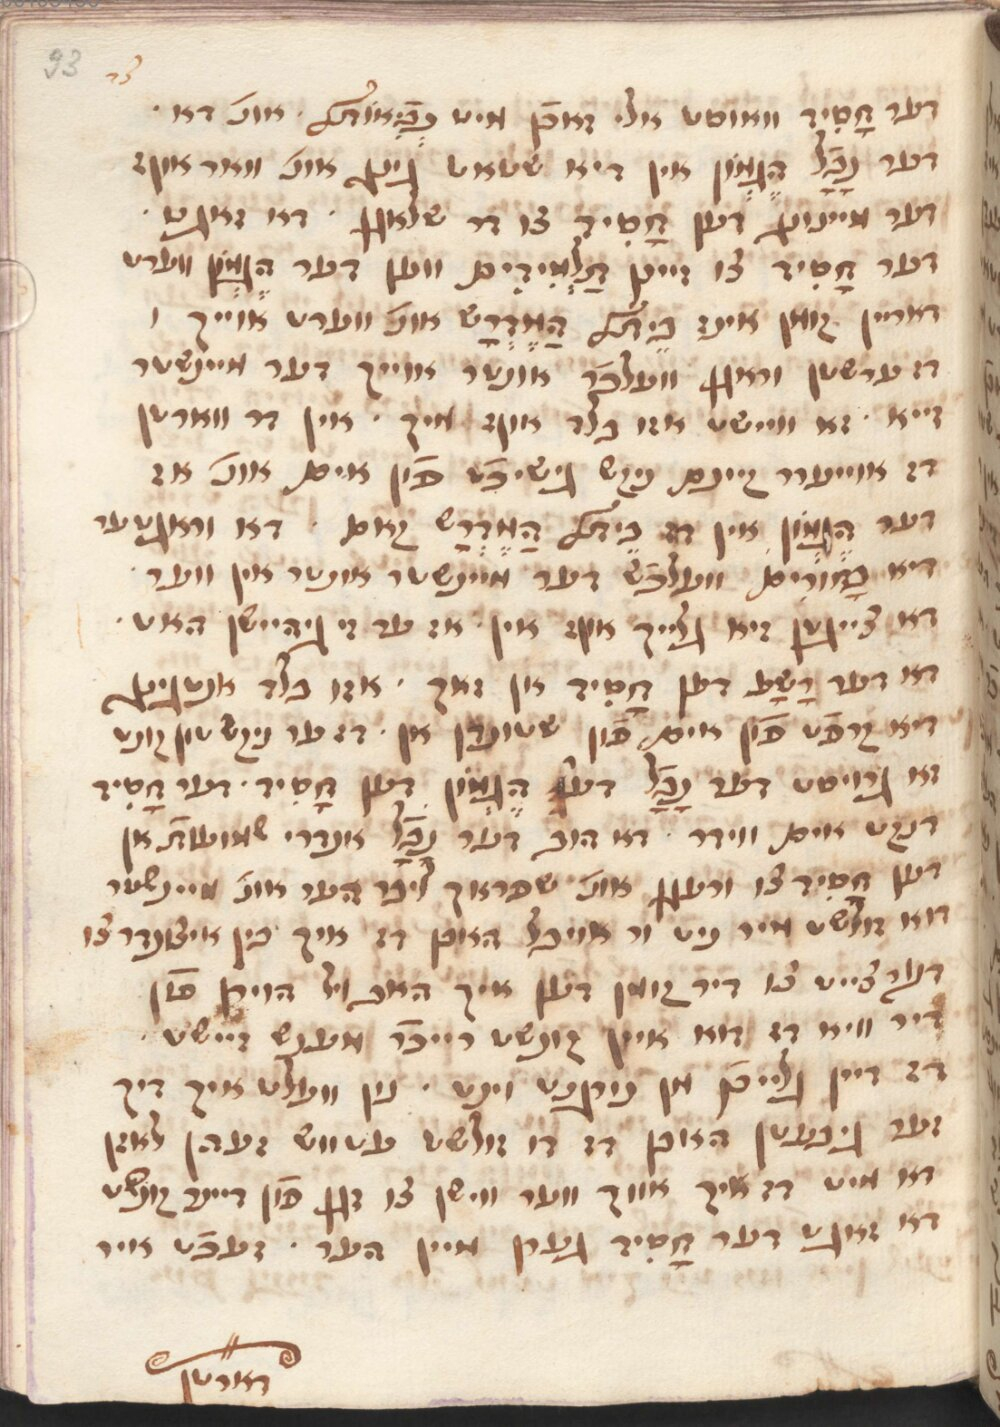 93 צג
דער חָסִיד וואוסט אלי זאכֿן מיט נְבִיאוּת . אונ' דא .
דער נָבָל הֶגְמוֹן אין דיא שטאט גינג אונ' וואר אונז
דער מיינונג דען חָסִיד צו דר שלאגן . דא זאגט .
דער חָסִיד צו זיינן תַלְמִידִים ווען דער הֶגְמוֹן ווערט
דאריין גואן אינז בֵית הַמִדְרָש אונ' ווערט אויך
דז ערשטן וראגן וועלכֿר אונטר אוייך דער מיינשטר
זייא . זא וויישט אזו בלד אונז מיך . אין דר ווארטן
דז אווייערר קיינם ניקש גישיכֿט פֿון אים אונ' אז
דער הֶגְמוֹן אין דז בֵית הַמִדְרָש קאם . דא וראגטער
דיא בַחוּרִים וועלכֿש דער מיינשטר אונטר אין ווער .
דא צייגטן זיא גלייך אונז אין . אז ער זי גיהיישן האט .
דא דער רָשָע דען חָסִיד אן זאך . אזו בלד אנטגינג
דיא קרפֿט פֿון אים פֿון שטונדן אן . דז ער ניקש טון קונט
זא גרויסט דער נָבָל דער הֶגְמוֹן דען חָסִיד . דער חָסִיד
דנקט אים ווידר . דא הוב דער נָבָל אנדרי שמועות אן
דען חָסִיד צו ורעגן אונ' שפראך ליבר הער אונ' מיינשטר
דוא זולשט מיר ניט ור אויבל האבן דז איך בין איצונדר צו
דער צייט צו דיר קואן דען איך האב ויל הוירן פֿון
דיר וויא דז דוא איין קונשט רייכֿר מענש זיישט .
דז דיין גלייכֿן מן נירגנט וינט . נון וועלט איך דיך
זער גיבעטן האבן דז דו זולשט עטווש זעהן לאזן
דא מיט דז איך אויך ווער ווישן צו זגן פֿון דיינר קונשט
דא זאגט דער חָסִיד גערן מיין הער . זעכֿט איר
דארטן